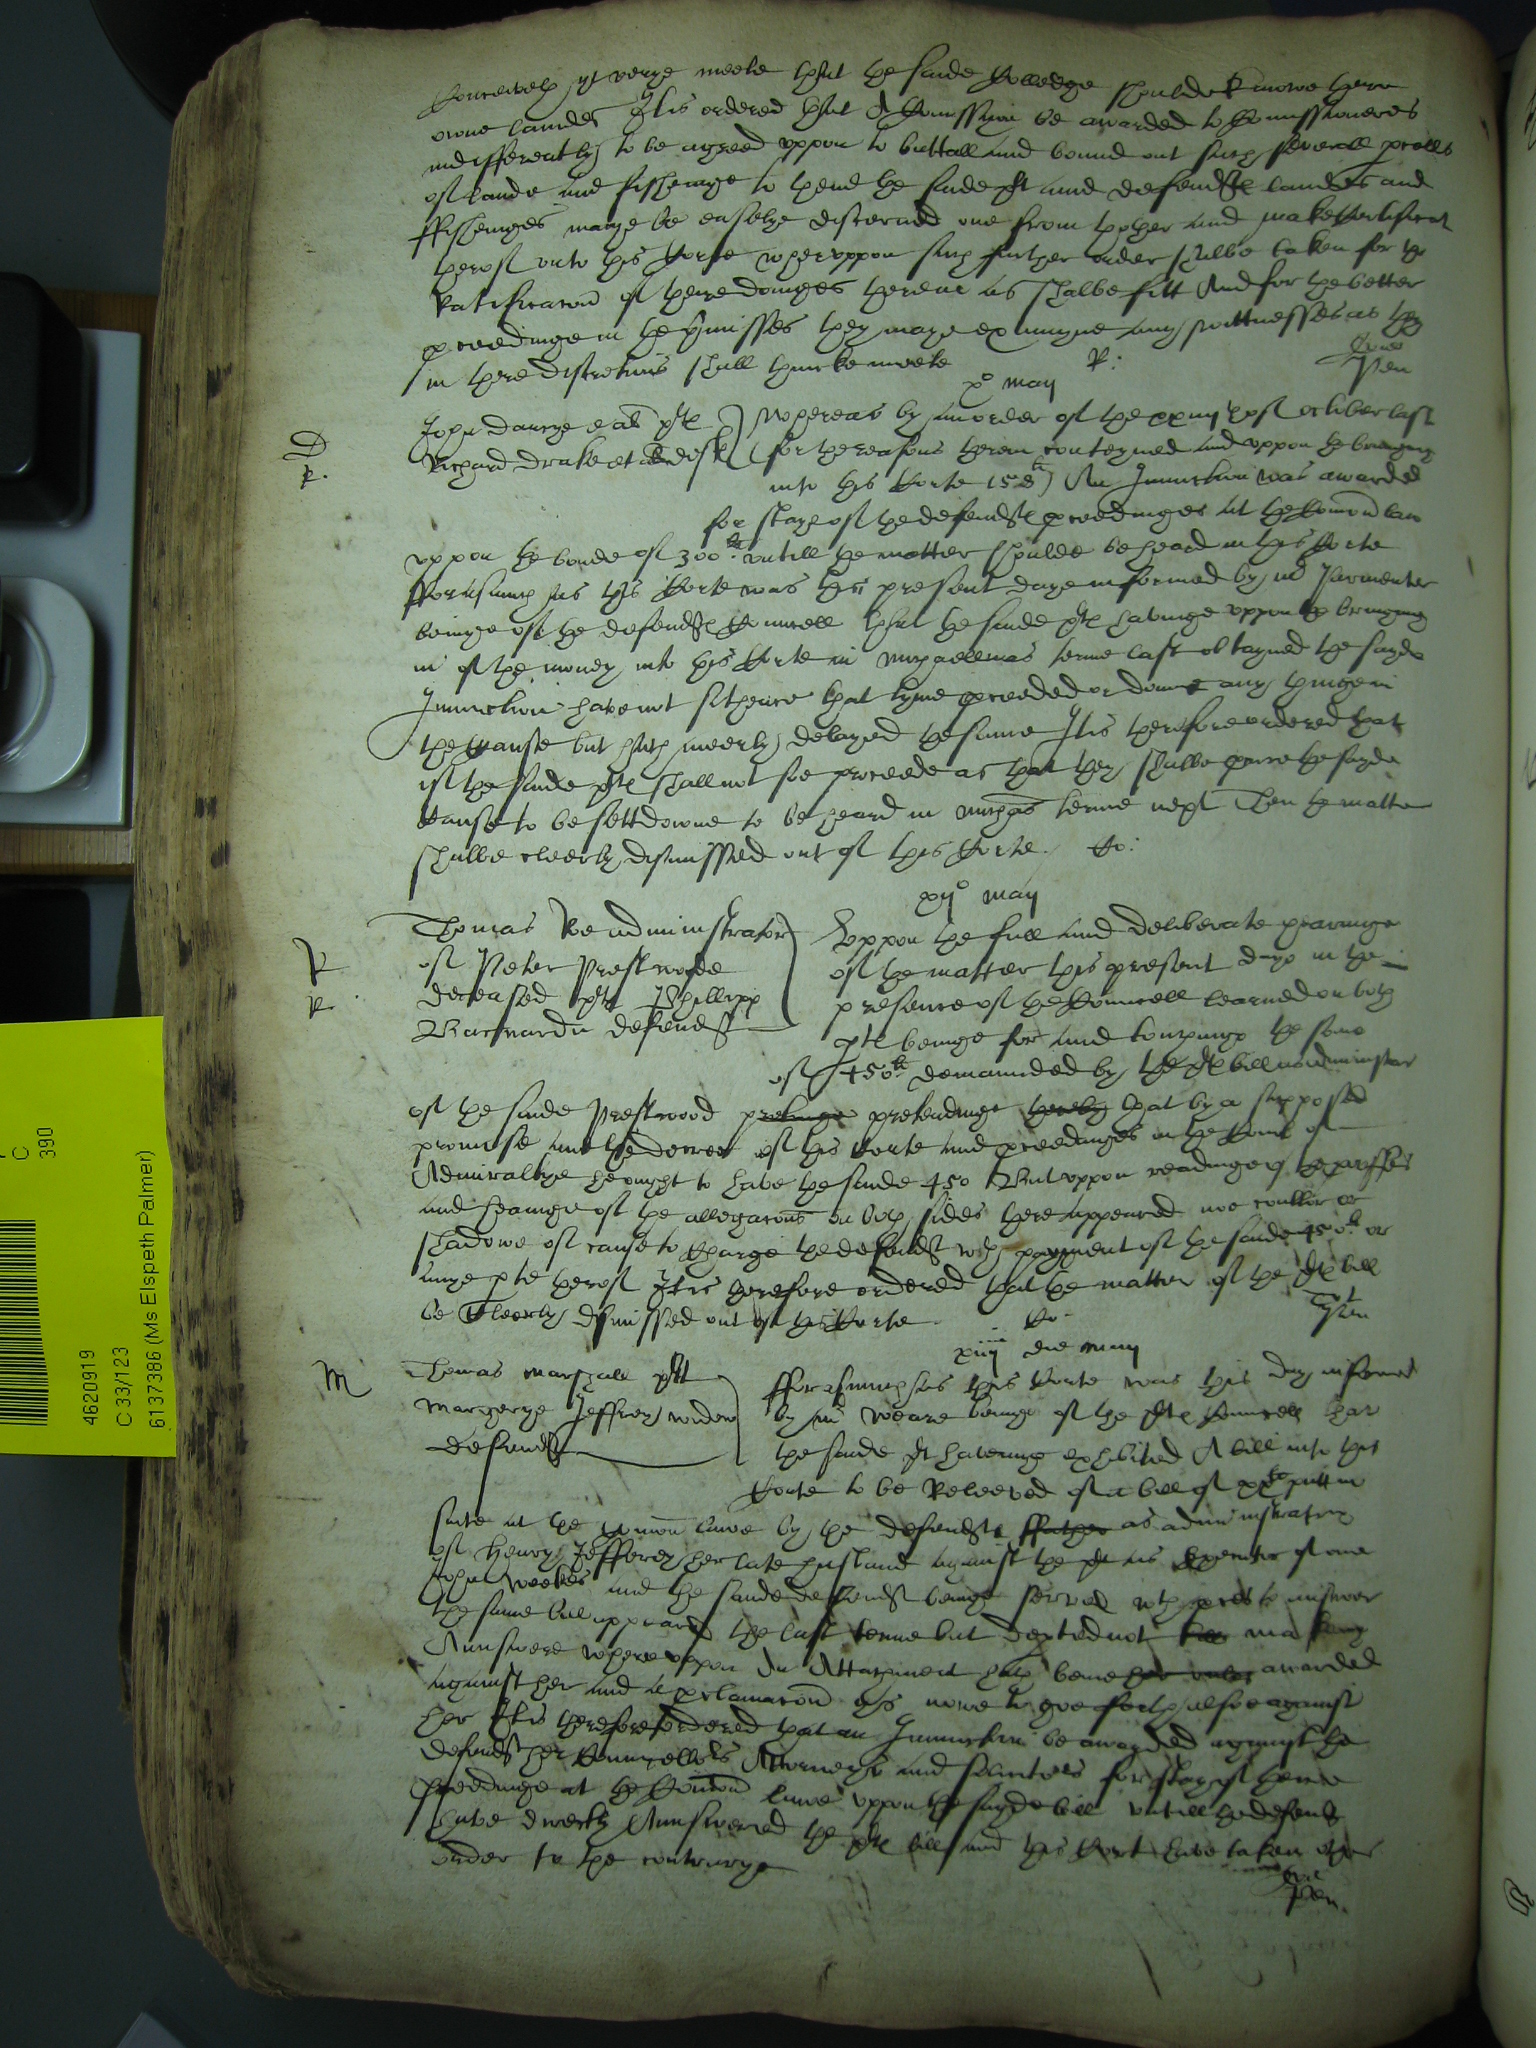 conceiveth yt verye meete that the saide Colledge should knowe there
owne landes It is ordered that A Comission be awarded to Comissioners
indifferently to be agreed uppon to buttall and bound out such severall pcells
of lande and fishenge to thend the saide plt and defendtes landes and
ffishenges maye be easelye discerned one from thother and make Certificat
therof unto this Corte wheruppon such further order shalbe taken for the
Ratificacon of there doinges therein as shalbe fitt And for the better
pceedinge in the pmisses they maye examyne any wittnesses as they
in there discretions shall thincke meete R:
Pen
xo maij
John Daucye et al plt
Richard Drake et al defts
Whereas by an order of the xxiiijth of october last
for the reasons therin conteyned and uppon the bringing
into this Corte 158li An Iniunction was awarded
D
R.
for staye of the defendtes pceedinges at the Comon law
uppon the bonde of 300li untill the matter shoulde be heard in this Corte
fforasmuch as this Corte was this present daye informed by mr Parmenter
beinge of the defendtes Councell that the saide plt havinge uppon the bringing
in of the money into this Corte in michaelmas terme last obtayned the sayde
Iniunction have not sithence that tyme pceeded or donne any thinge in
the Cause but hath meerly delayed the same It is therefore ordered that
if the saide plt shall not soe proceede as that they shalbe the sayde
Cause to be sett downe to be heard in michas terme next Then the matter
shalbe cleerly dismissed out of this Corte. Co:
xijo maij
Thomas administrator
of Peter Prestwoode
deceased plt Phillipp
Barnarde defendt
R
R
Uppon the full and deliberate hearinge
of the matter this present daye in the
presence of the Councell learned on both
ptes beinge for and touchinge the some
of 450li demaunded by the plt bill as administrator
of the saide Prestwood pretendinge that by a supposed
promise and the decree of this Corte and pceedinges in the Court of
Admiraltye he ought to have the saide 450 But uppon readinge of the proffes
and hearinge of the allegacons on both sides there appeared noe coullor or
shadowe of cause to Charge the defendt wth payment of the saide 450li or
anye pte therof It is therefore ordered that the matter of the plt bill
be Cleerly dismissed out of this Corte Co.
Pen
xiiij die maij
M
Thomas Marshall plt
Margerye Jeffrey widow
defendt
fforasmuch as this Corte was this day informed
by mr Weare beinge of the plt Councell that
the saide plt havinge exhibited A bill into this
Corte to be Releeved of a bill of xxli putt in
suite at the Comon lawe by the defendt ffather as administratrix
of Henry Jefferey her late husband against the plt as Executor of one
John Weekes and the saide defendt beinge served wth pces to answer
the same bill appeared the last terme but depted not makeing
Aunswere whereuppon An Attachment hath beene awarded
against her and A pclamacon is nowe to goe forth also against
her It is therefore ordered that an Iniunction be awarded against the
defendt her Councellors Attorneys and solicitors for stay of there
pceedinge at the Comon lawe uppon the sayde bill untill the defendt
have directly Aunswered the plt bill and this Cort have taken other
order to the contrarye
Pen.
C
390
4620919
C 33/123
6137386 (Ms Elspeth Palmer)